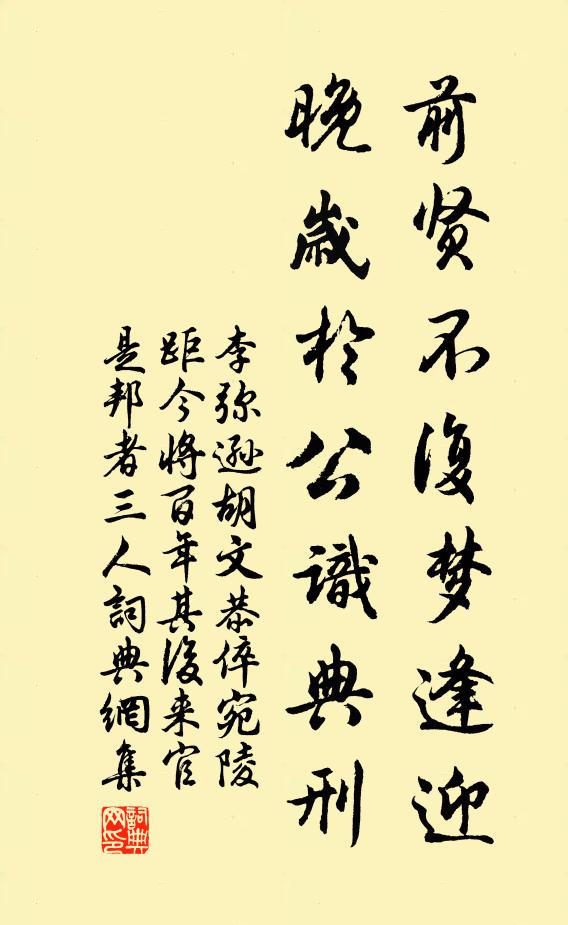 前贤不復梦逢迎
晚歲於公識典刑
李弥遜胡文恭倅宛陵
距今將百年其後来官
是邦者三人詞典網集
詞典網印